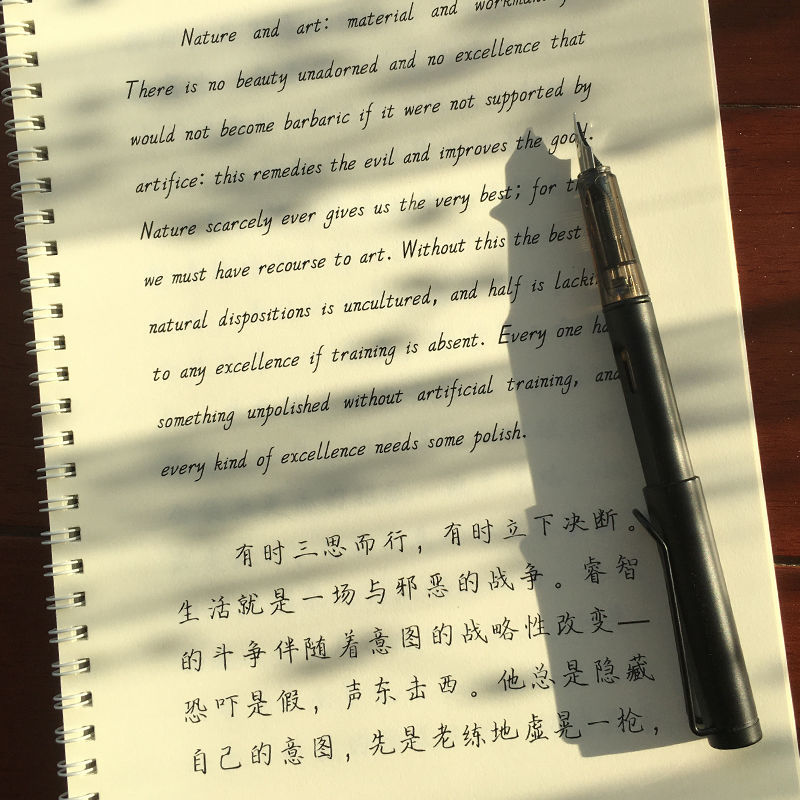 Nature and art: material and
There is no beauty unadorned and no excellence that
would not become barbaric if it were not supported by
artifice: this remedies the evil and improves the good.
Nature scarcely ever gives us the very best; for
we must have recourse to art. Without this the best
natural dispositions is uncultured, and half is
to any excellence if training is absent. Every one
something unpolished without artificial training, and
every kind of excellence needs some polish.
有时三思而行，有时立下决断。
生活就是一场与邪恶的战争。睿智
的斗争伴随着意图的战略性改变—
恐吓是假，声东击西。他总是隐藏
自己的意图，先是老练地虚晃一枪，